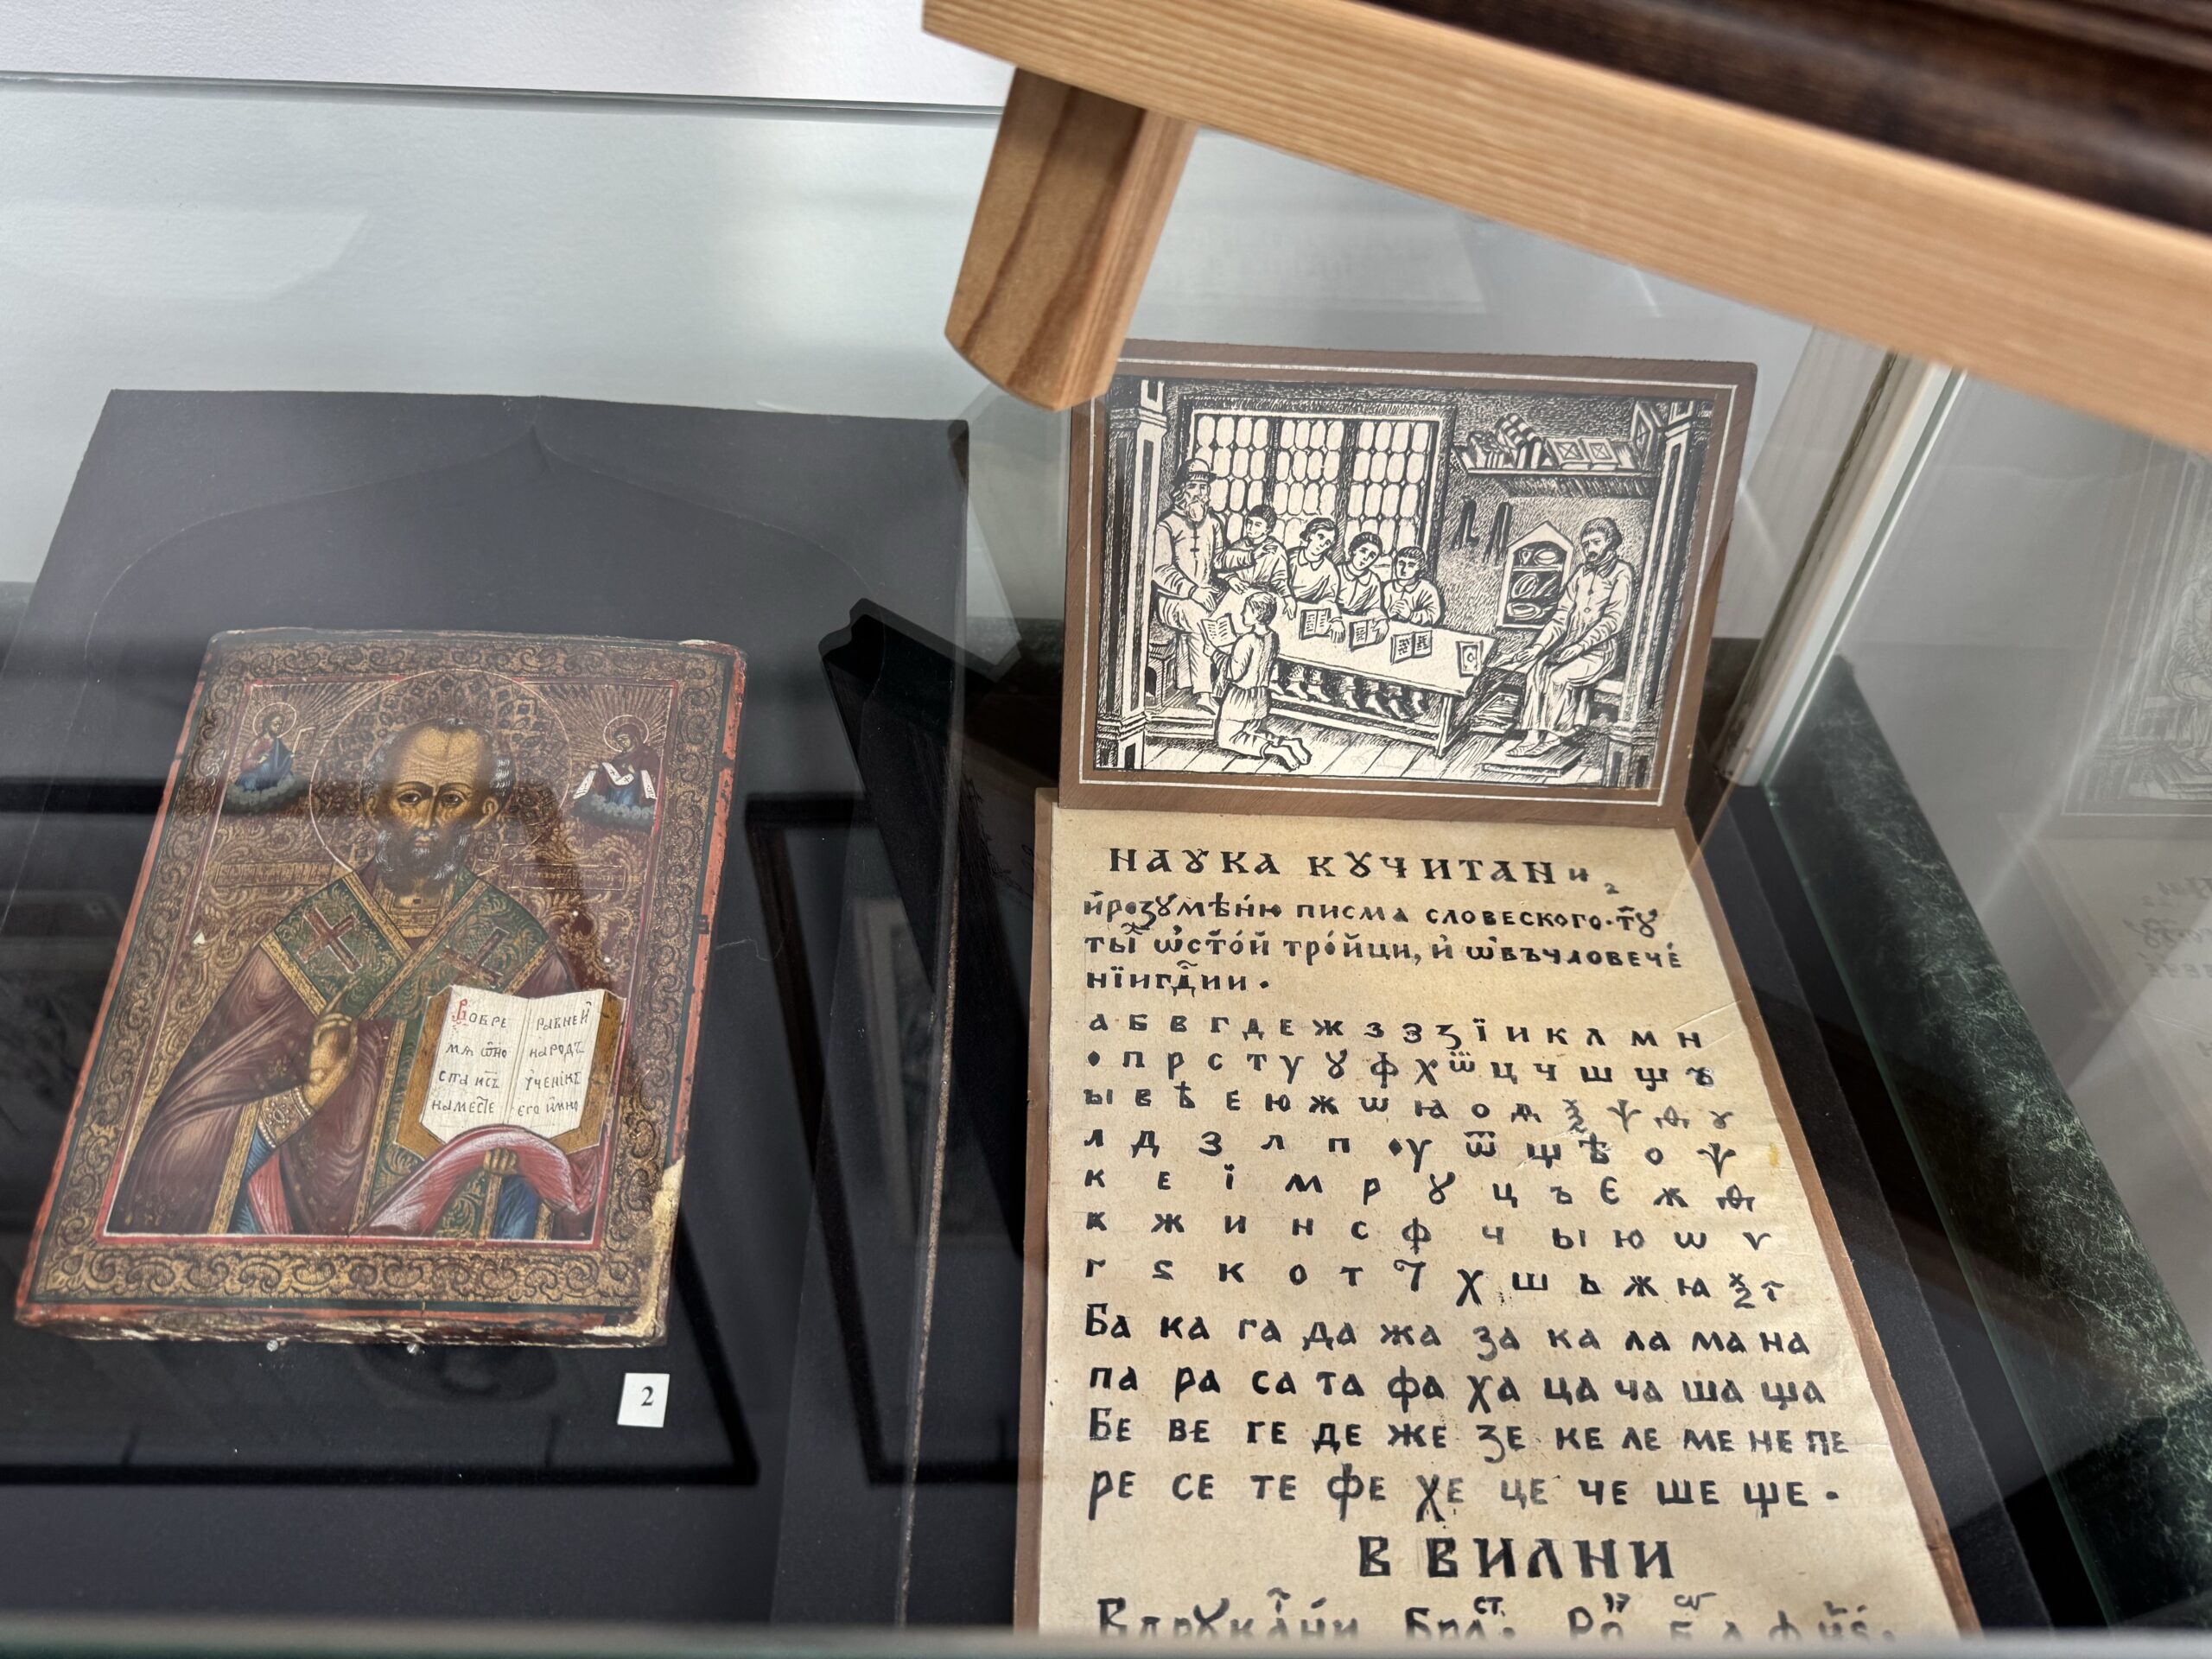 Вобре
мѧ ѿно
ста исъ
наместе
равней
народъ
ученікъ
его имно
2
НАꙋКА КꙋЧИТАНИ
ирозꙋмѣню писма словеского. тꙋ
ты ѡ стой тройци, и ѡвъчловече
нїи гдни.
а б в г д е ж з з ꙁ ї и к л м н
о п р с т у ꙋ ф х ѿ ц ч ш щ ъ
л д з л п оу ѿ щ ѣ о ѱ
к е ї м р ꙋ ц ъ є ж ѧ
к ж и н с ф ч ы ю ѡ ѵ
Ба ка га да жа за ка ла ма на
па ра са та фа ха ца ча ша ща
Бе ве ге де же зе ке ле ме не пе
ре се те фе хе це че ше ще .
В ВИЛНИ